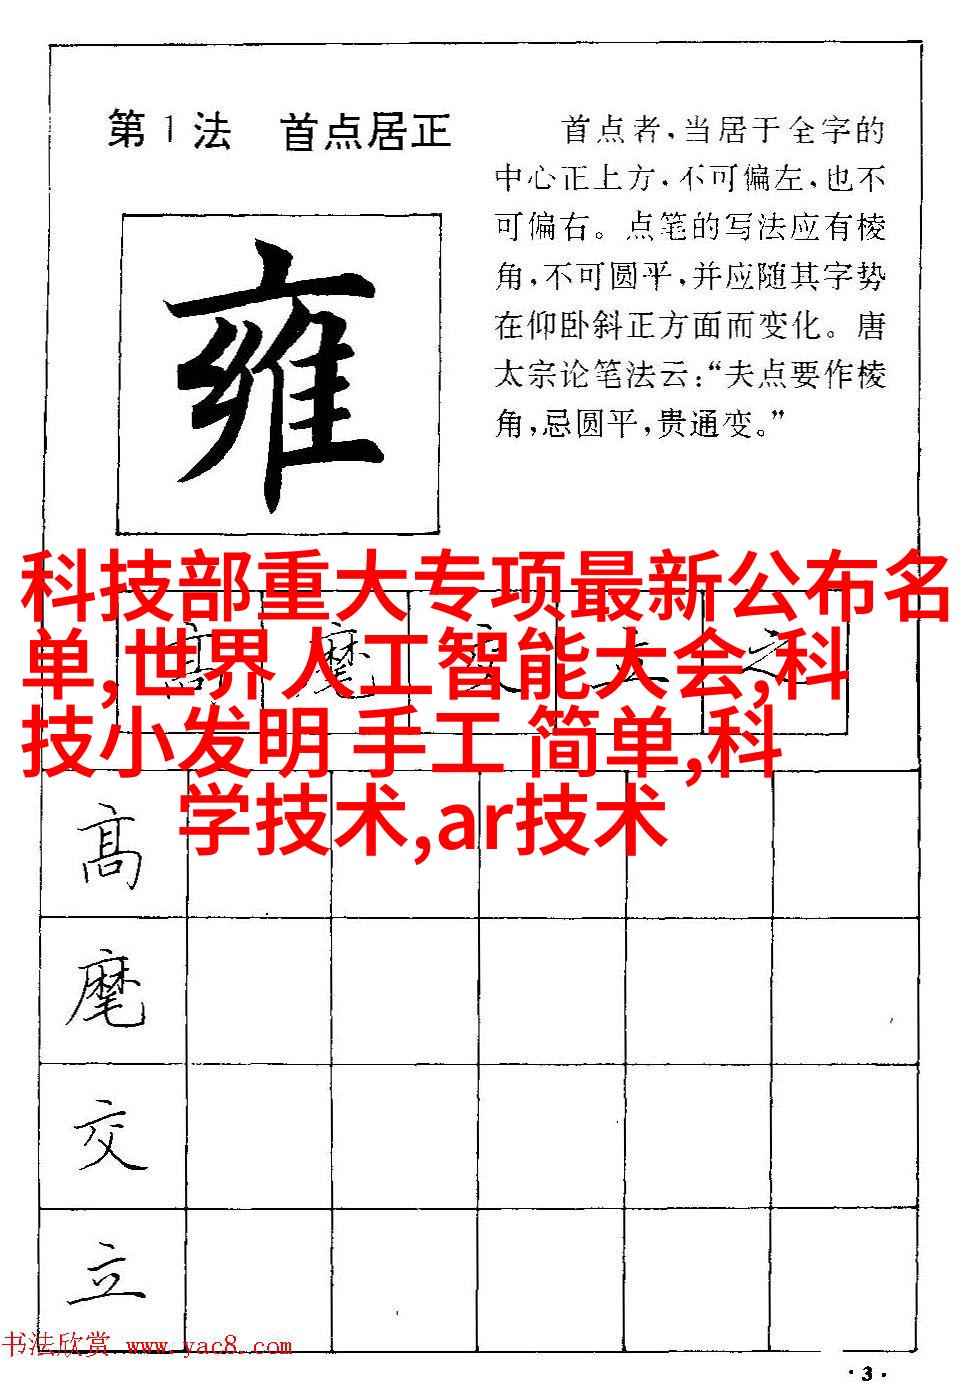 第1法 首点居正
首点者,当居于全字的
中心正上方,不可偏左,也不
可偏右。点笔的写法应有棱
角,不可圆平,并应随其字势
在仰卧斜正方面而变化。唐
太宗论笔法云:“夫点要作棱
角,忌圆平,贵通变。”
雍
科技部重大专项最新公布名
单,世界人工智能大会,科
技小发明 手工 简单,科
学技术,ar技术
高 魔 交 立 之
高
麾
交
立
书法欣赏 www.yac8.com
·3·